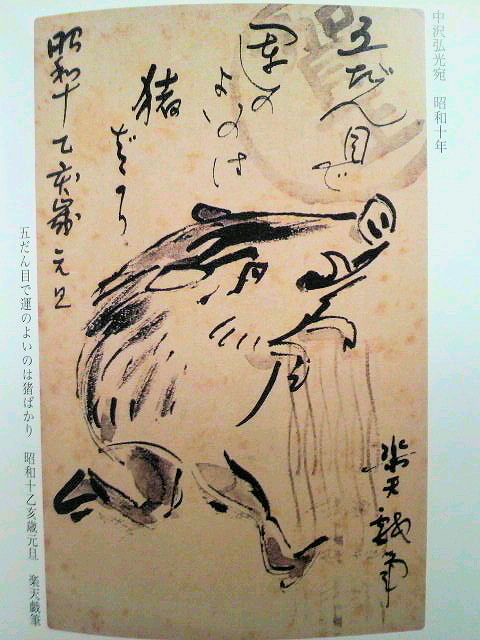 中沢弘光宛　昭和十年
五だん目で
運の
よいのは
猪
ばかり
昭和十乙亥歳元旦
楽天戯筆
五だん目で運のよいのは猪ばかり　昭和十乙亥歳元旦　楽天戯筆